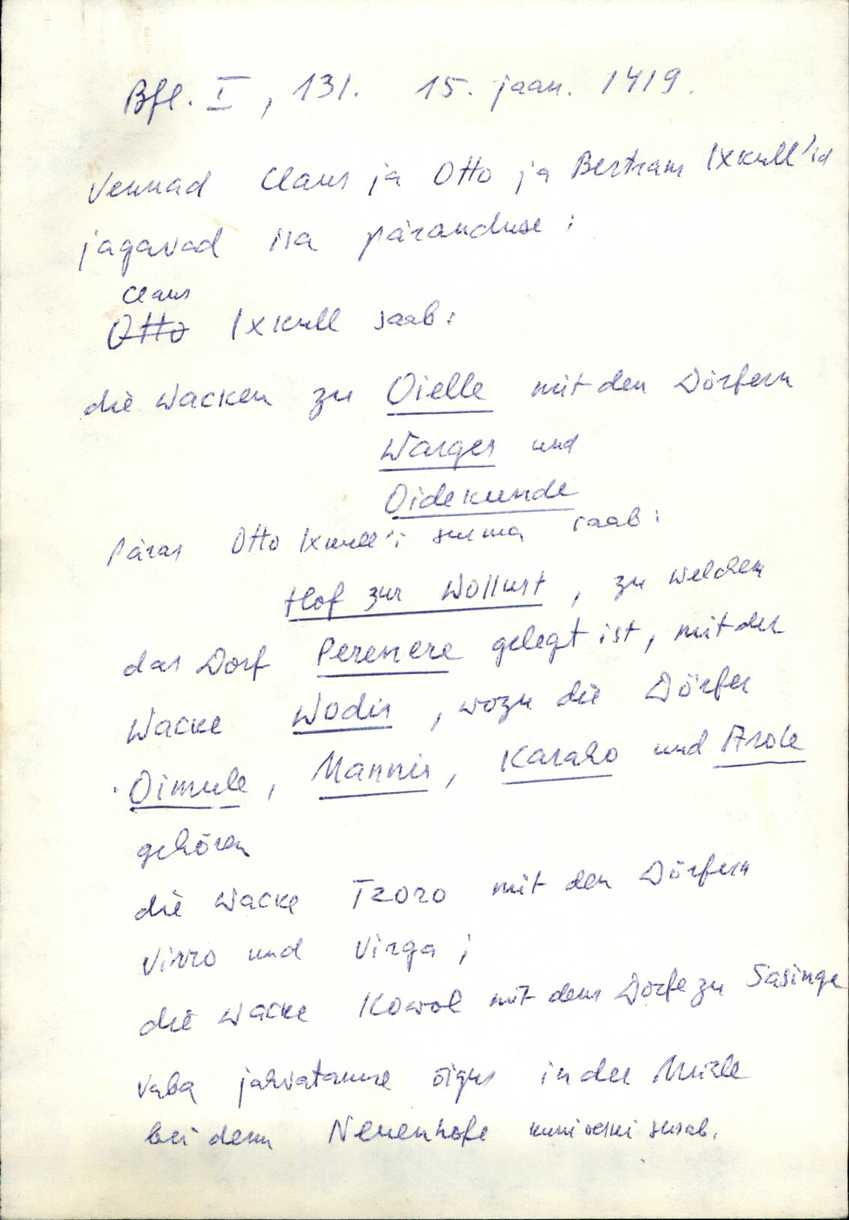 Bfl. I, 131. 15. jaan. 1419.
Vennad Claus ja Otto ja Bertram Ixkull'id
jagavad isa päranduse:
Claus
Otto Ixkull saab:
die Wacken zu Oielle mit den Dörfern
Warges und
Oidekunde
Päras Otto Ixkull'i surma saab:
Hof zur Wollust, zu welchem
das Dorf Perenere gelegt ist, mit der
Wacke Wodis, wozu die Dörfer
Oimule, Mannis, Karaho und Arole
gehören
die Wacke Tzoro mit den Dörfern
Virro und Virga;
die Wacke Kowol mit dem Dorfe zu Sasinge
vaba jahvatamise õigus in der Mühle
bei dem Neuenhofe kuni veski seisab.